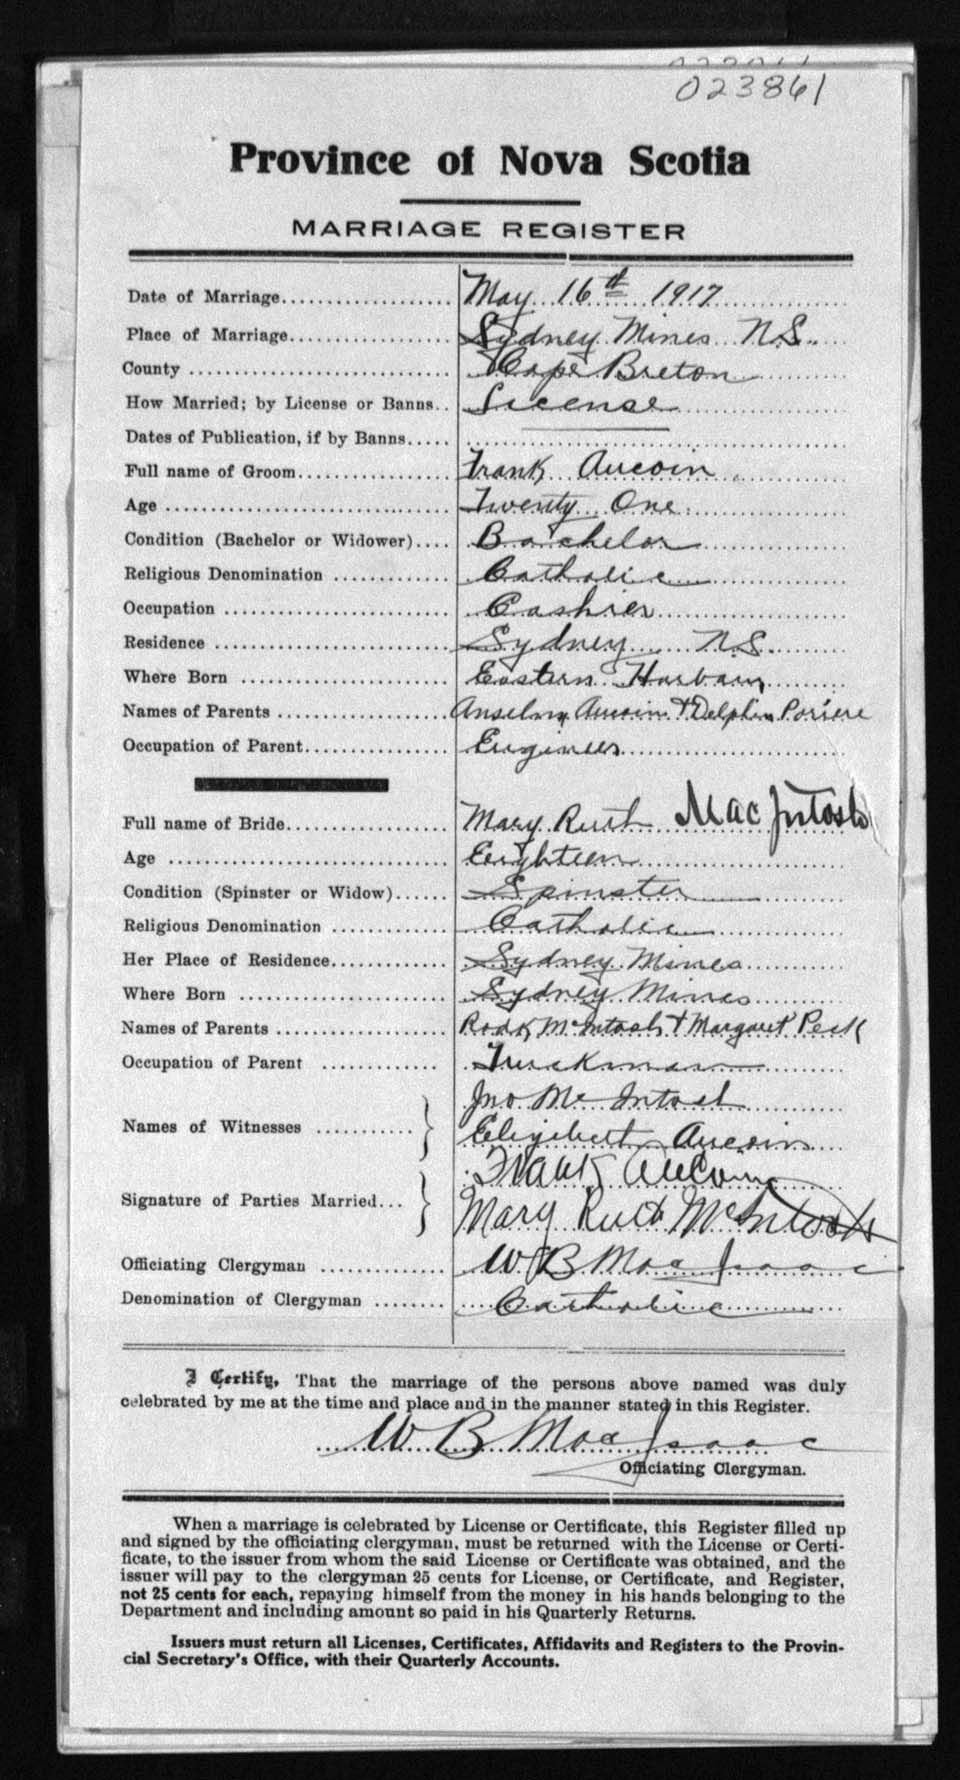 023861
Province of Nova Scotia
MARRIAGE REGISTER
Date of Marriage.................. May 16th 1917
Place of Marriage................. Sydney Mines N.S.
County ............................ Cape Breton
How Married; by License or Banns.. License
Dates of Publication, if by Banns.....
Full name of Groom................ Frank Aucoin
Age ............................... Twenty One
Condition (Bachelor or Widower).... Bachelor
Religious Denomination ............ Catholic
Occupation ........................ Cashier
Residence ......................... Sydney N.S.
Where Born ........................ Eastern Harbour
Names of Parents .................. Anselm Aucoin + Delphin
Occupation of Parent............... Engineer
Full name of Bride................. Mary Ruth MacIntosh
Age ............................... Eighteen
Condition (Spinster or Widow)...... Spinster
Religious Denomination ............ Catholic
Her Place of Residence............. Sydney Mines
Where Born ........................ Sydney Mines
Names of Parents .................. Rodk McIntosh + Margaret Peck
Occupation of Parent .............. Truckman
Jno McIntosh
Names of Witnesses ...........
Elizibeth Aucoin
Frank Aucoin
Signature of Parties Married...
Mary Ruth McIntosh
Officiating Clergyman ............. W B MacIsaac
Denomination of Clergyman ........ Catholic
I Certify, That the marriage of the persons above named was duly
celebrated by me at the time and place and in the manner stated in this Register.
W B MacIsaac
Officiating Clergyman.
When a marriage is celebrated by License or Certificate, this Register filled up
and signed by the officiating clergyman, must be returned with the License or Certi-
ficate, to the issuer from whom the said License or Certificate was obtained, and the
issuer will pay to the clergyman 25 cents for License, or Certificate, and Register,
not 25 cents for each, repaying himself from the money in his hands belonging to the
Department and including amount so paid in his Quarterly Returns.
Issuers must return all Licenses, Certificates, Affidavits and Registers to the Provin-
cial Secretary's Office, with their Quarterly Accounts.